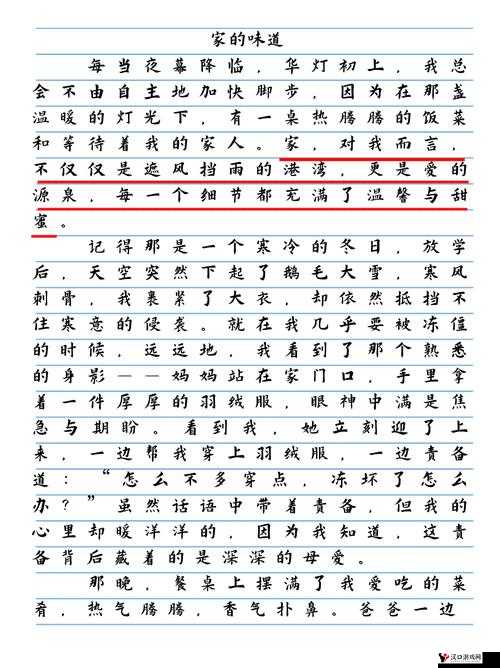 家的味道
每当夜幕降临，华灯初上，我总
会不由自主地加快脚步，因为在那盏
温暖的灯光下，有一桌热腾腾的饭菜
和等待着我的家人。家，对我而言，
不仅仅是遮风挡雨的港湾，更是爱的
源泉，每一个细节都充满了温馨与甜
蜜。
记得那是一个寒冷的冬日，放学
后，天空突然下起了鹅毛大雪，寒风
刺骨，我裹紧了大衣，却依然抵挡不
住寒意的侵袭。就在我几乎要被冻僵
的时候，远远地，我看到了那个熟悉
的身影——妈妈站在家门口，手里拿
着一件厚厚的羽绒服，眼神中满是焦
急与期盼。看到我，她立刻迎了上
来，一边帮我穿上羽绒服，一边责备
道：“怎么不多穿点，冻坏了怎么
办？”虽然话语中带着责备，但我的
心里却暖洋洋的，因为我知道，这责
备背后藏着的是深深的母爱。
那晚，餐桌上摆满了我爱吃的菜
肴，热气腾腾，香气扑鼻。爸爸一边
汉口游戏网